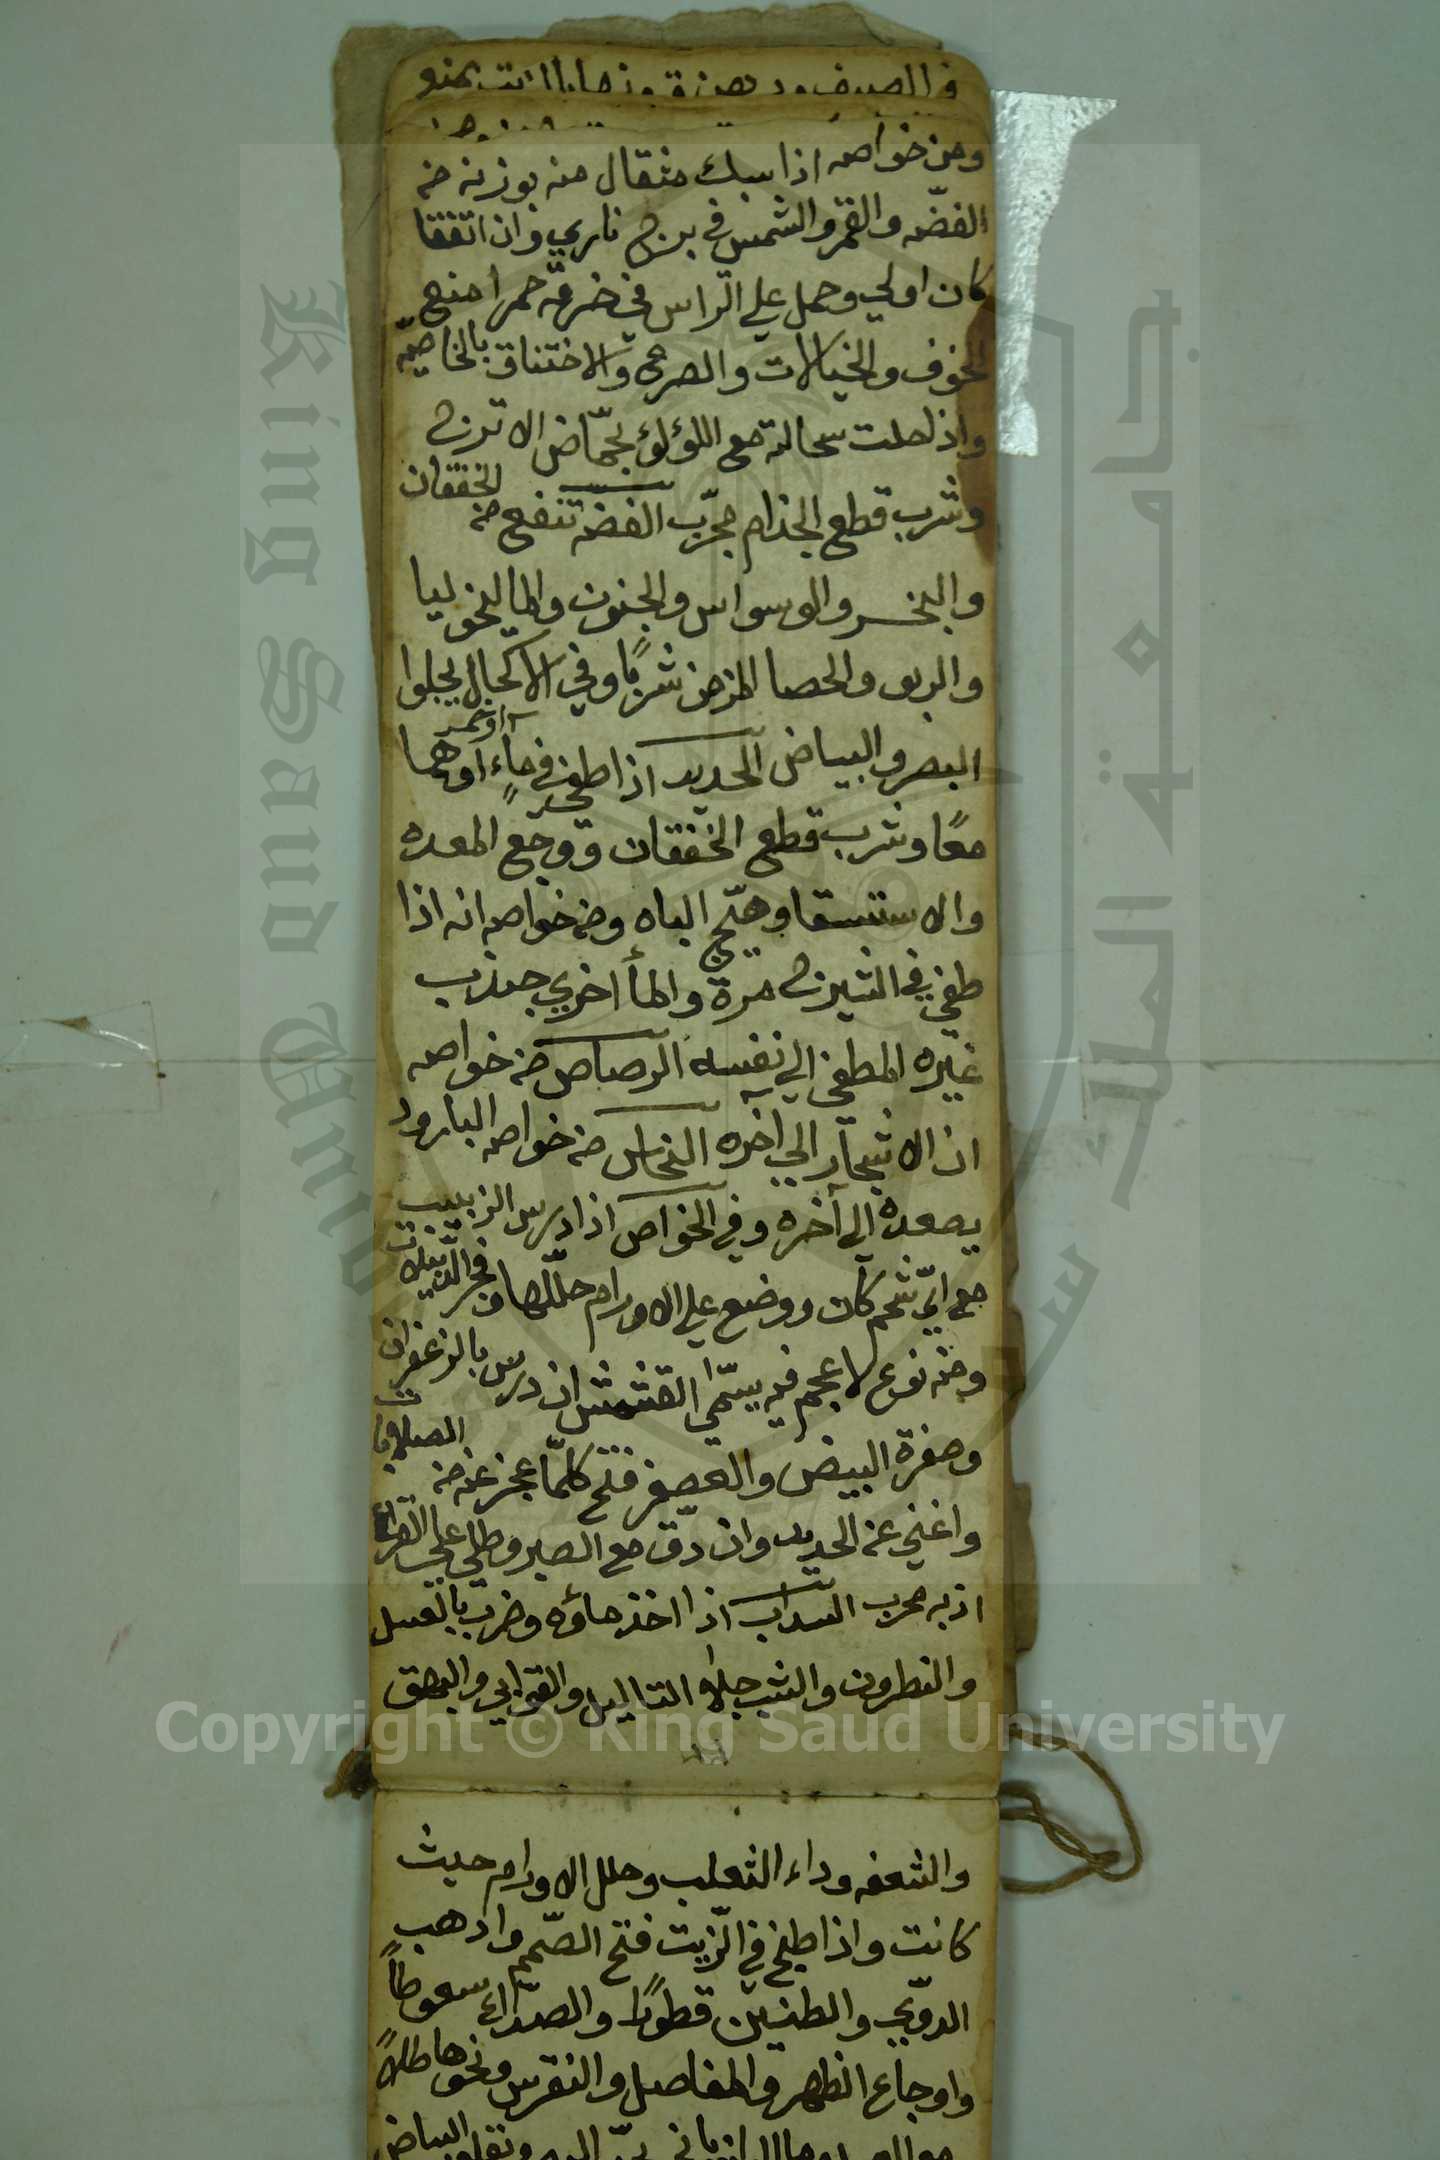 ومن خواصه اذا سبك مثقال منه بوزنه من
الفضّه والقمر والشمس في برج ناري وان اتفقا
كان اولي وحمل علي الراس في خرقه حمرا منع
الخوف والخيالات والصرع والاختناق بالخاصيّه
واذا حلت سحالته مع اللؤلؤ بحمّاض الاترج
وشرب قطع الجذام مجرّب الفضه تنفع من الخفقان
والبخر والوسواس والجنون والماليخوليا
والربو والحصا المزمن شربًا وفي الاكحال يجلوا
البصر والبياض الحديد اذا طفي في ماء او خمر اوهما
معًا وشرب قطع الخفقان ووجع المعده
والاستسقا وهيّج الباه ومن خواصه انه اذا
طفي في الشيرج مرة والمأ اخري جذب
غيره المطفي الي نفسه الرصاص من خواصه
ان الاشجار الي اخره النحاس من خواصه البارود
يصعده الي آخره وفي الخواص اذا درس الزبيب
مع ايّ شحم كان ووضع علي الاورام حلّلها وفجر الدّبيلات
ومنه نوع لا عجم فيه يسمّي القشمش ان درس بالزعفران
وصفرة البيض والعصفر فتح كلمّا عجز عنه من الصلابات
واغني عن الحديد وان دقّ مع الصبر وطلي علي القراع
اذبه مجرب السداب اذا اخذ ماؤه وضرب بالعسل
والنطرون والشب جلاه الثاليل والقوابي والبهق
والشعفه وداء الثعلب وحلل الاورام حيث
كانت واذا طبخ في الزّيت فتح الصّمم واذهب
الدوّي والطنين قطورًا والصدّاع سعوطاً
واوجاع الظهر والمفاصل والنقرس ونحوها طلاءً
Copyright © King Saud University
King Saud University
جامعة الملك سعود